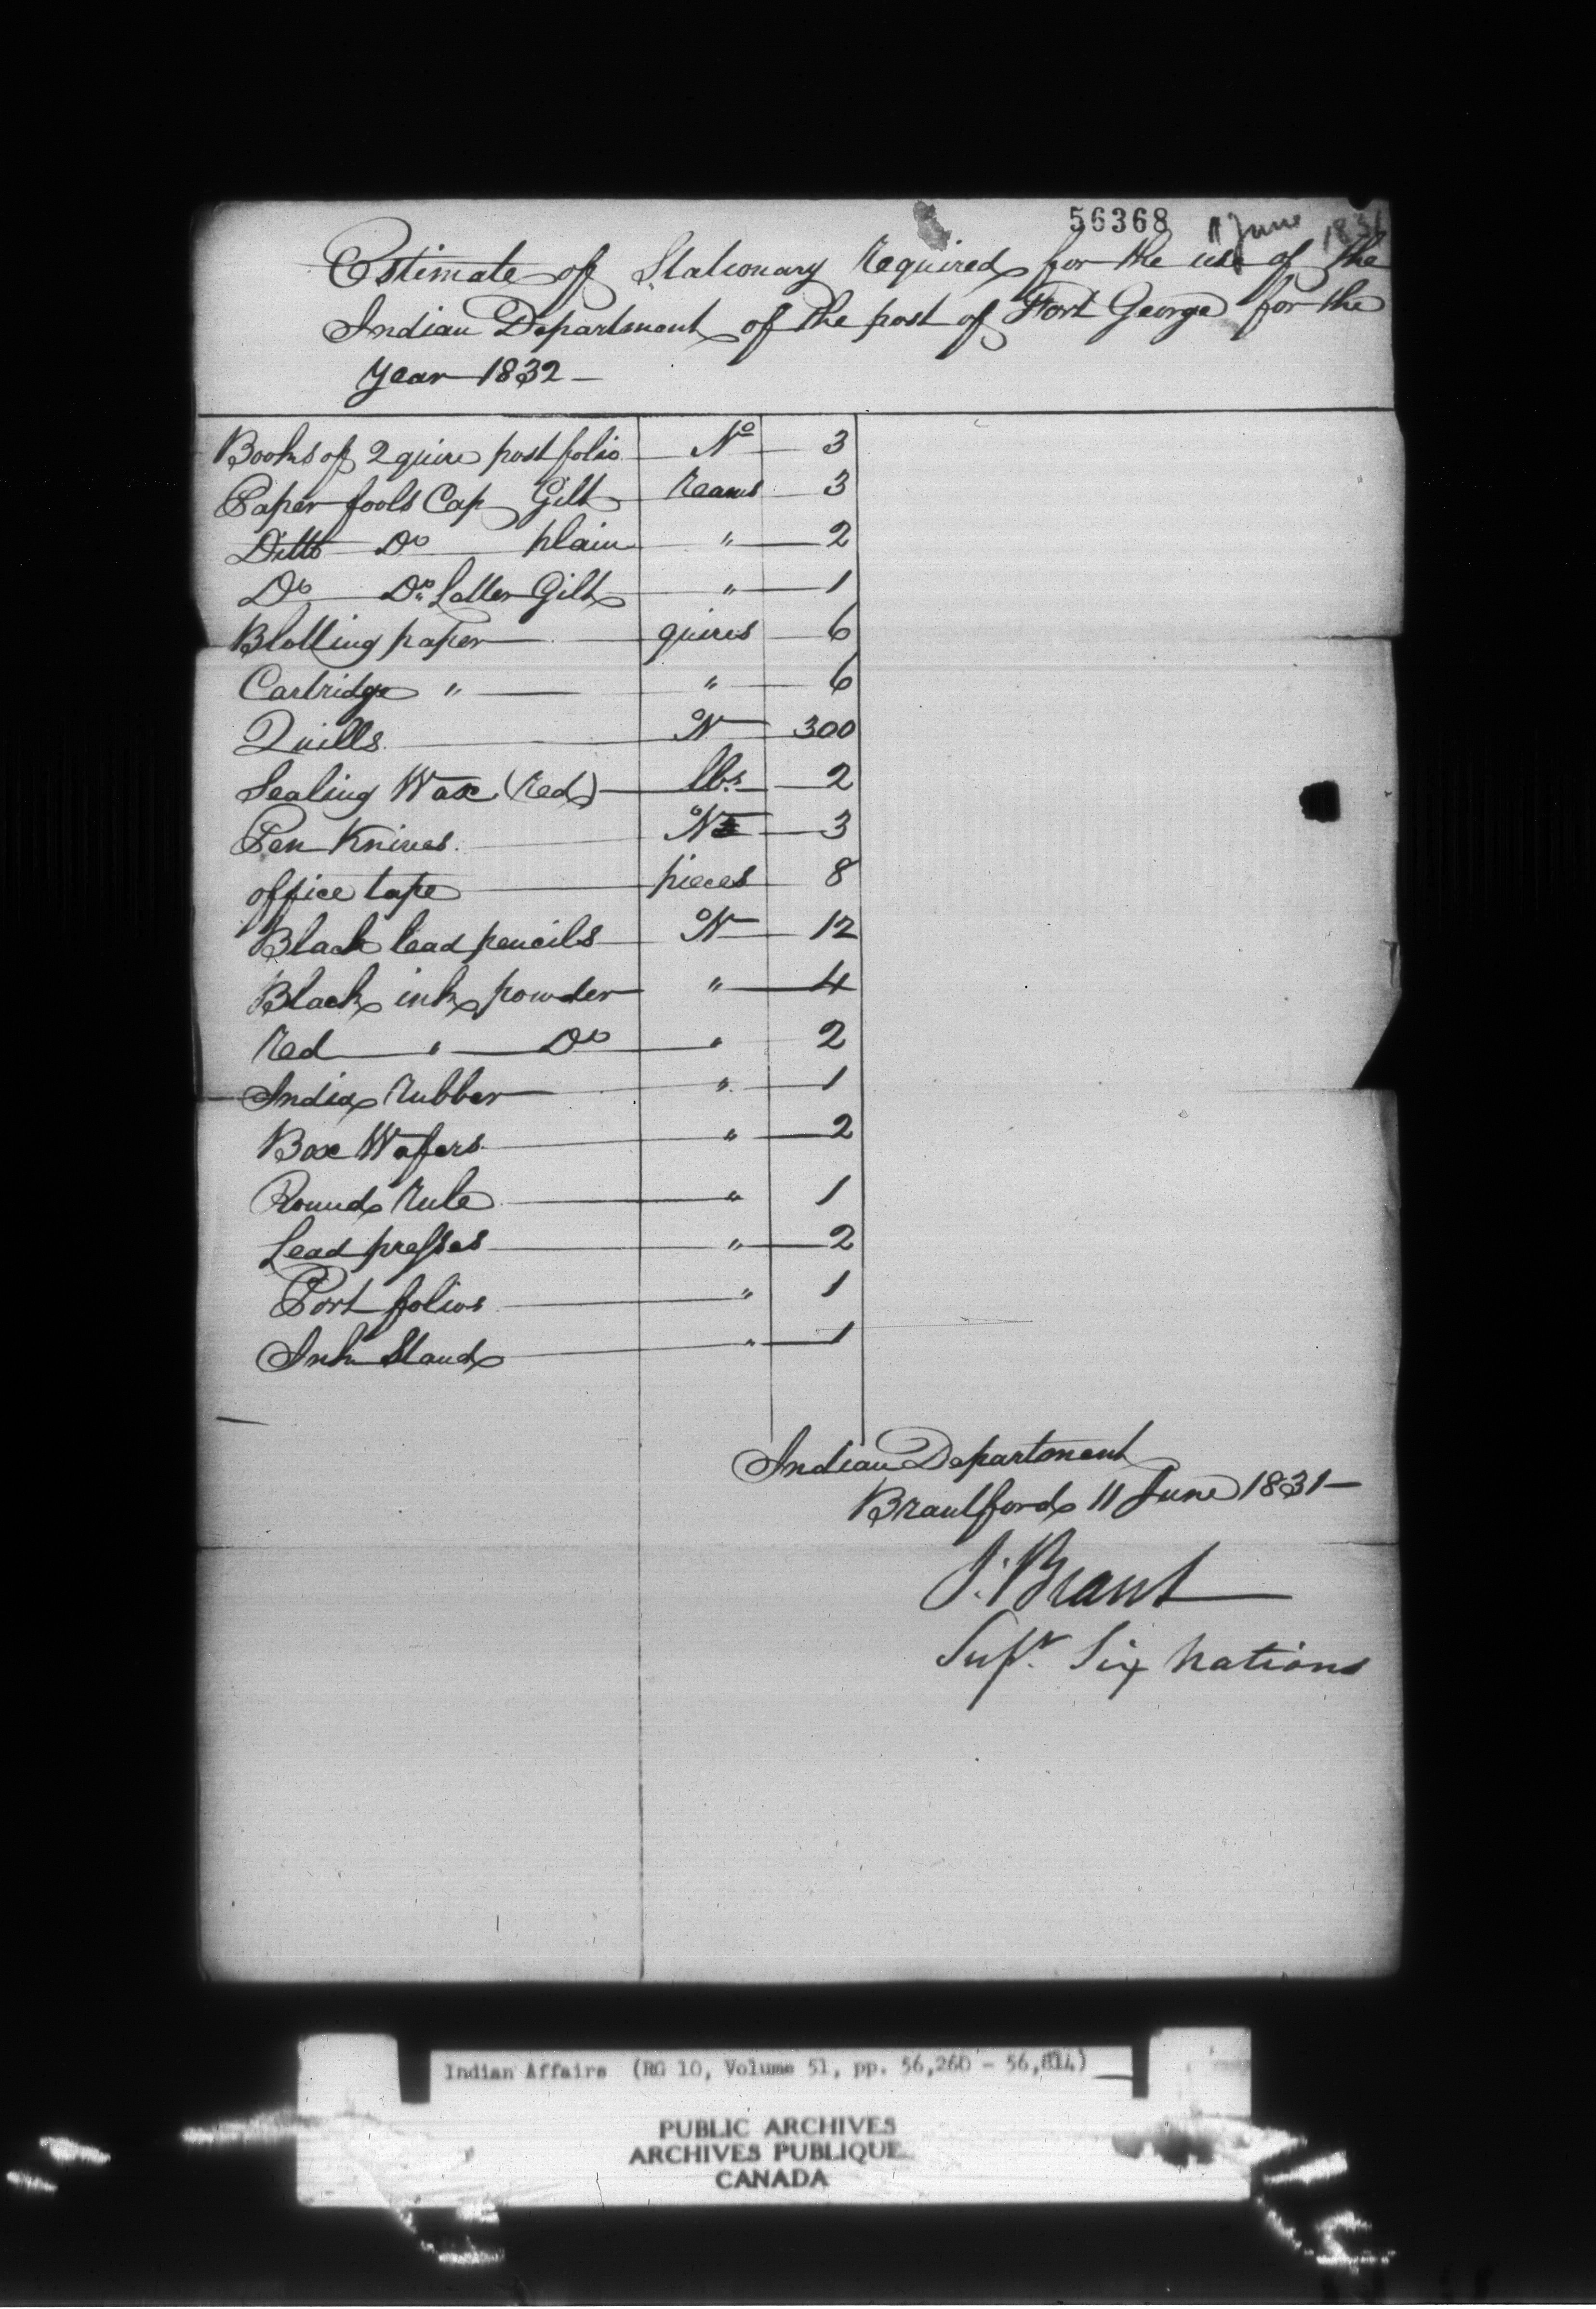 56368 11 June 1831
Estimate of Stationary Required for the use of the
Indian Department of the post of Fort George for the
year 1832 —
Books of 2 quire post folio No 3
Paper fools Cap Gilt reams 3
Ditto Do plain " 2
Do Do Letter Gilt " 1
Blotting paper quires 6
Cartridge " " 6
Quills No 300
Sealing Wax (red) lbs 2
Pen Knives No 3
office tape pieces 8
Black lead pencils No 12
Black ink powder " 4
Red " Do " 2
India Rubber " 1
Box Wafers " 2
Round Rule " 1
Lead presses " 2
Port folios " 1
Ink Stand " 1
Indian Department
Brantford 11 June 1831 —
J. Brant
Supt. Six Nations
Indian Affairs (RG 10, Volume 51, pp. 56,260 - 56,814)
PUBLIC ARCHIVES
ARCHIVES PUBLIQUE
CANADA